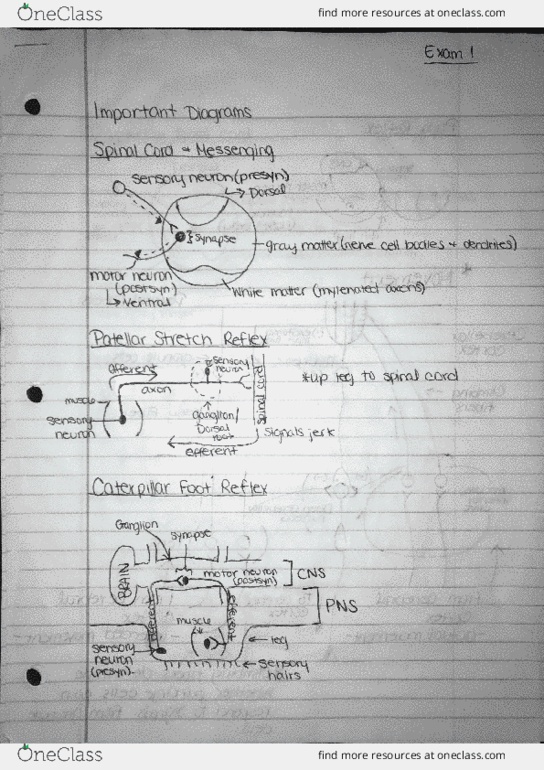 OneClass
find more resources at oneclass.com
Exam 1
Important Diagrams
Spinal Cord + Messenging
sensory neuron (presyn)
↳ Dorsal
synapse
gray matter (nerve cell bodies + dendrites)
motor neuron
(postsyn)
↳ ventral
White matter (mylenated axons)
Patellar Stretch Reflex
afferent
sensory
neuron
axon
*up leg to spinal cord
muscle
sensory
neuron
ganglion/
Dorsal
root
spinal cord
signals jerk
efferent
Caterpillar Foot Reflex
Ganglion
synapse
BRAIN
motor neuron
(postsyn)
CNS
PNS
afferent
efferent
muscle
leg
sensory
neuron
(presyn)
sensory
hairs
OneClass
find more resources at oneclass.com